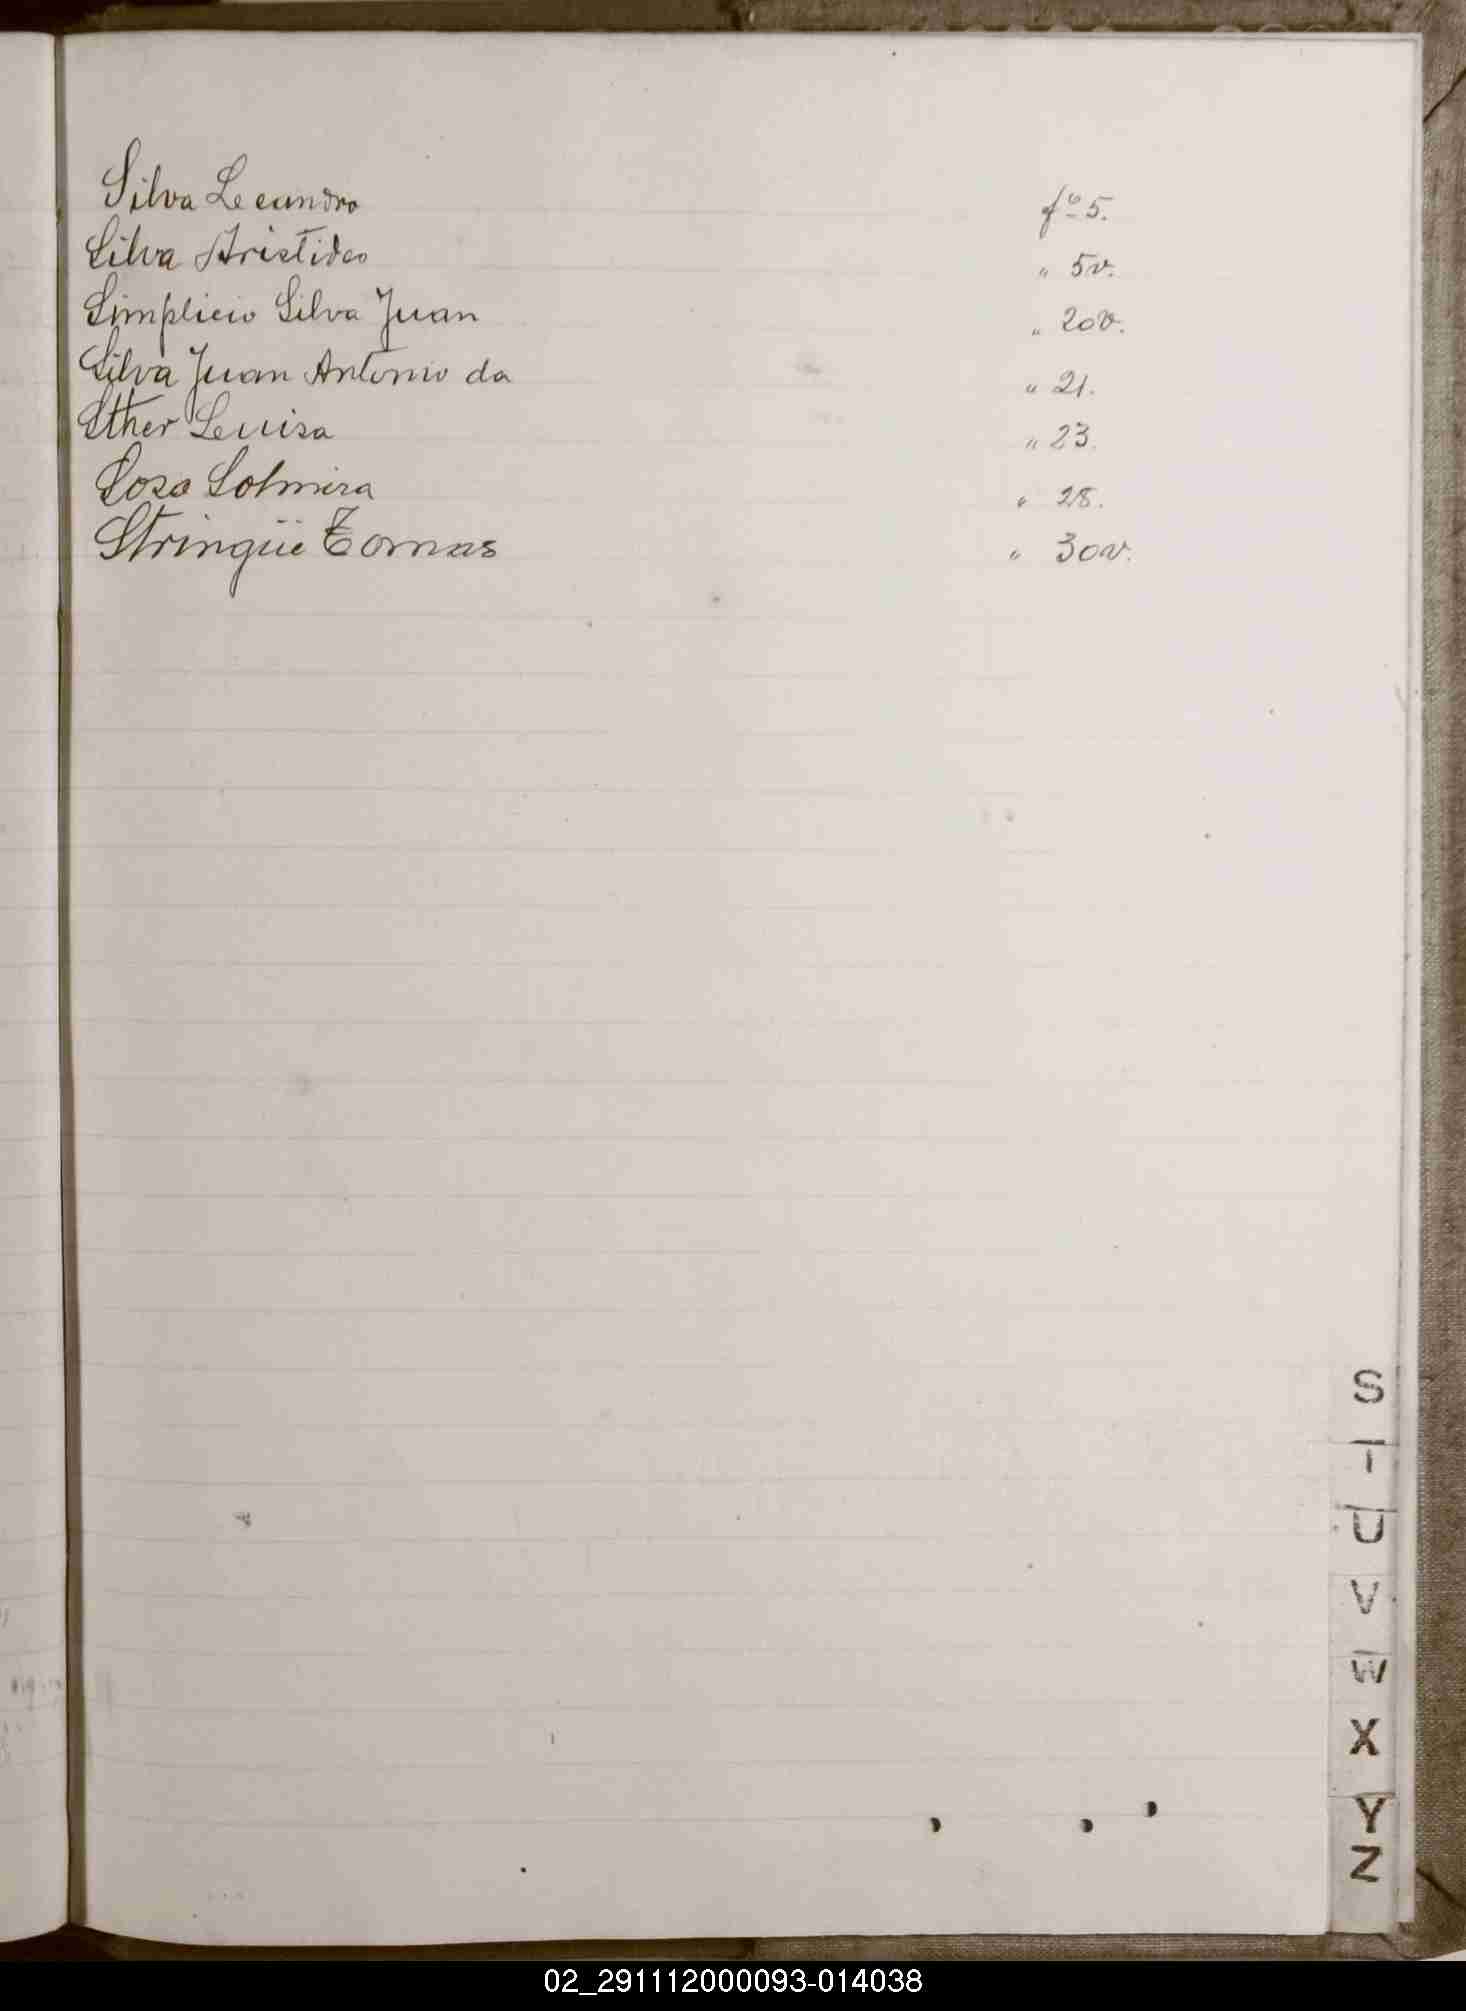 Silva Leandro fº 5.
Silva Aristides " 5v.
Simplicio Silva Juan " 20v.
Silva Juan Antonio da " 21.
Sther Luisa " 23.
Sosa Solmira " 28.
Stringüe Tomas " 30v.
S
T
U
V
W
X
Y
Z
02_291112000093-014038